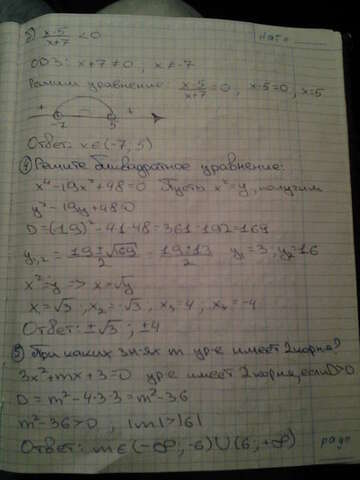 б) x-5/x+7 < 0
ОДЗ: x+7≠0, x≠-7
Решим уравнение: x-5/x+7 = 0, x-5=0, x=5
+ - +
-7 5
Ответ: x∈(-7, 5)
④ Решите биквадратное уравнение:
x⁴-19x²+48=0 Пусть x²=y, получим
y²-19y+48=0
D=(19)²-4·1·48=361-192=169
y₁,₂ = 19±√169/2 = 19±13/2 y₁=3; y₂=16
x²=y => x=√y
x₁=√3; x₂=-√3, x₃=4; x₄=-4
Ответ: ±√3; ±4
⑤ При каких зн-ях m ур-е имеет 2 корня?
3x²+mx+3=0 ур-е имеет 2 корня, если D>0.
D=m²-4·3·3=m²-36
m²-36>0, |m|>|6|
Ответ: m∈(-∞; -6)∪(6; +∞)